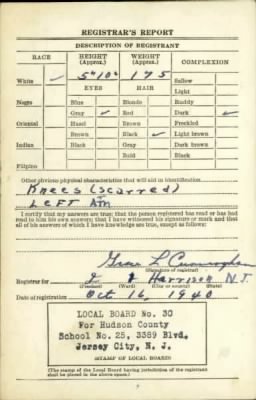 REGISTRAR'S REPORT
DESCRIPTION OF REGISTRANT
RACE HEIGHT (Approx.) WEIGHT (Approx.) COMPLEXION
5' 10" 175
White ✓ EYES HAIR Sallow
Light
Negro Blue Blonde Ruddy
Gray ✓ Red Dark ✓
Oriental Hazel Brown Freckled
Brown Black ✓ Light brown
Indian Black Gray Dark brown
Bald Black
Filipino
Other obvious physical characteristics that will aid in identification
Knees (scarred)
Left Arm
I certify that my answers are true; that the person registered has read or has had
read to him his own answers; that I have witnessed his signature or mark and that
all of his answers of which I have knowledge are true, except as follows:
L
(Signature of registrar)
Registrar for Harrison N.J.
(Precinct) (Ward) (City or county) (State)
Date of registration Oct 16, 1940
LOCAL BOARD No. 30
For Hudson County
School No. 25, 3389 Blvd.
Jersey City, N. J.
(STAMP OF LOCAL BOARD)
(The stamp of the Local Board having jurisdiction of the registrant
shall be placed in the above space.)